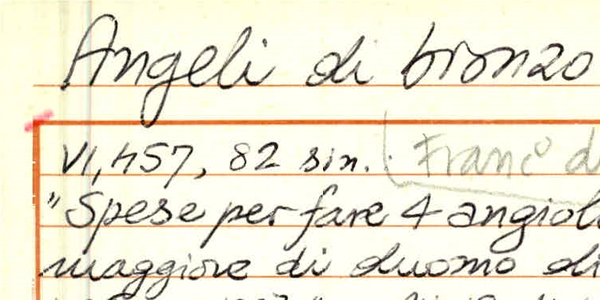 Angeli di bronzo
VI, 457, 82 sin. Franc° d
"Spese per fare 4 angiol
maggiore di duomo di